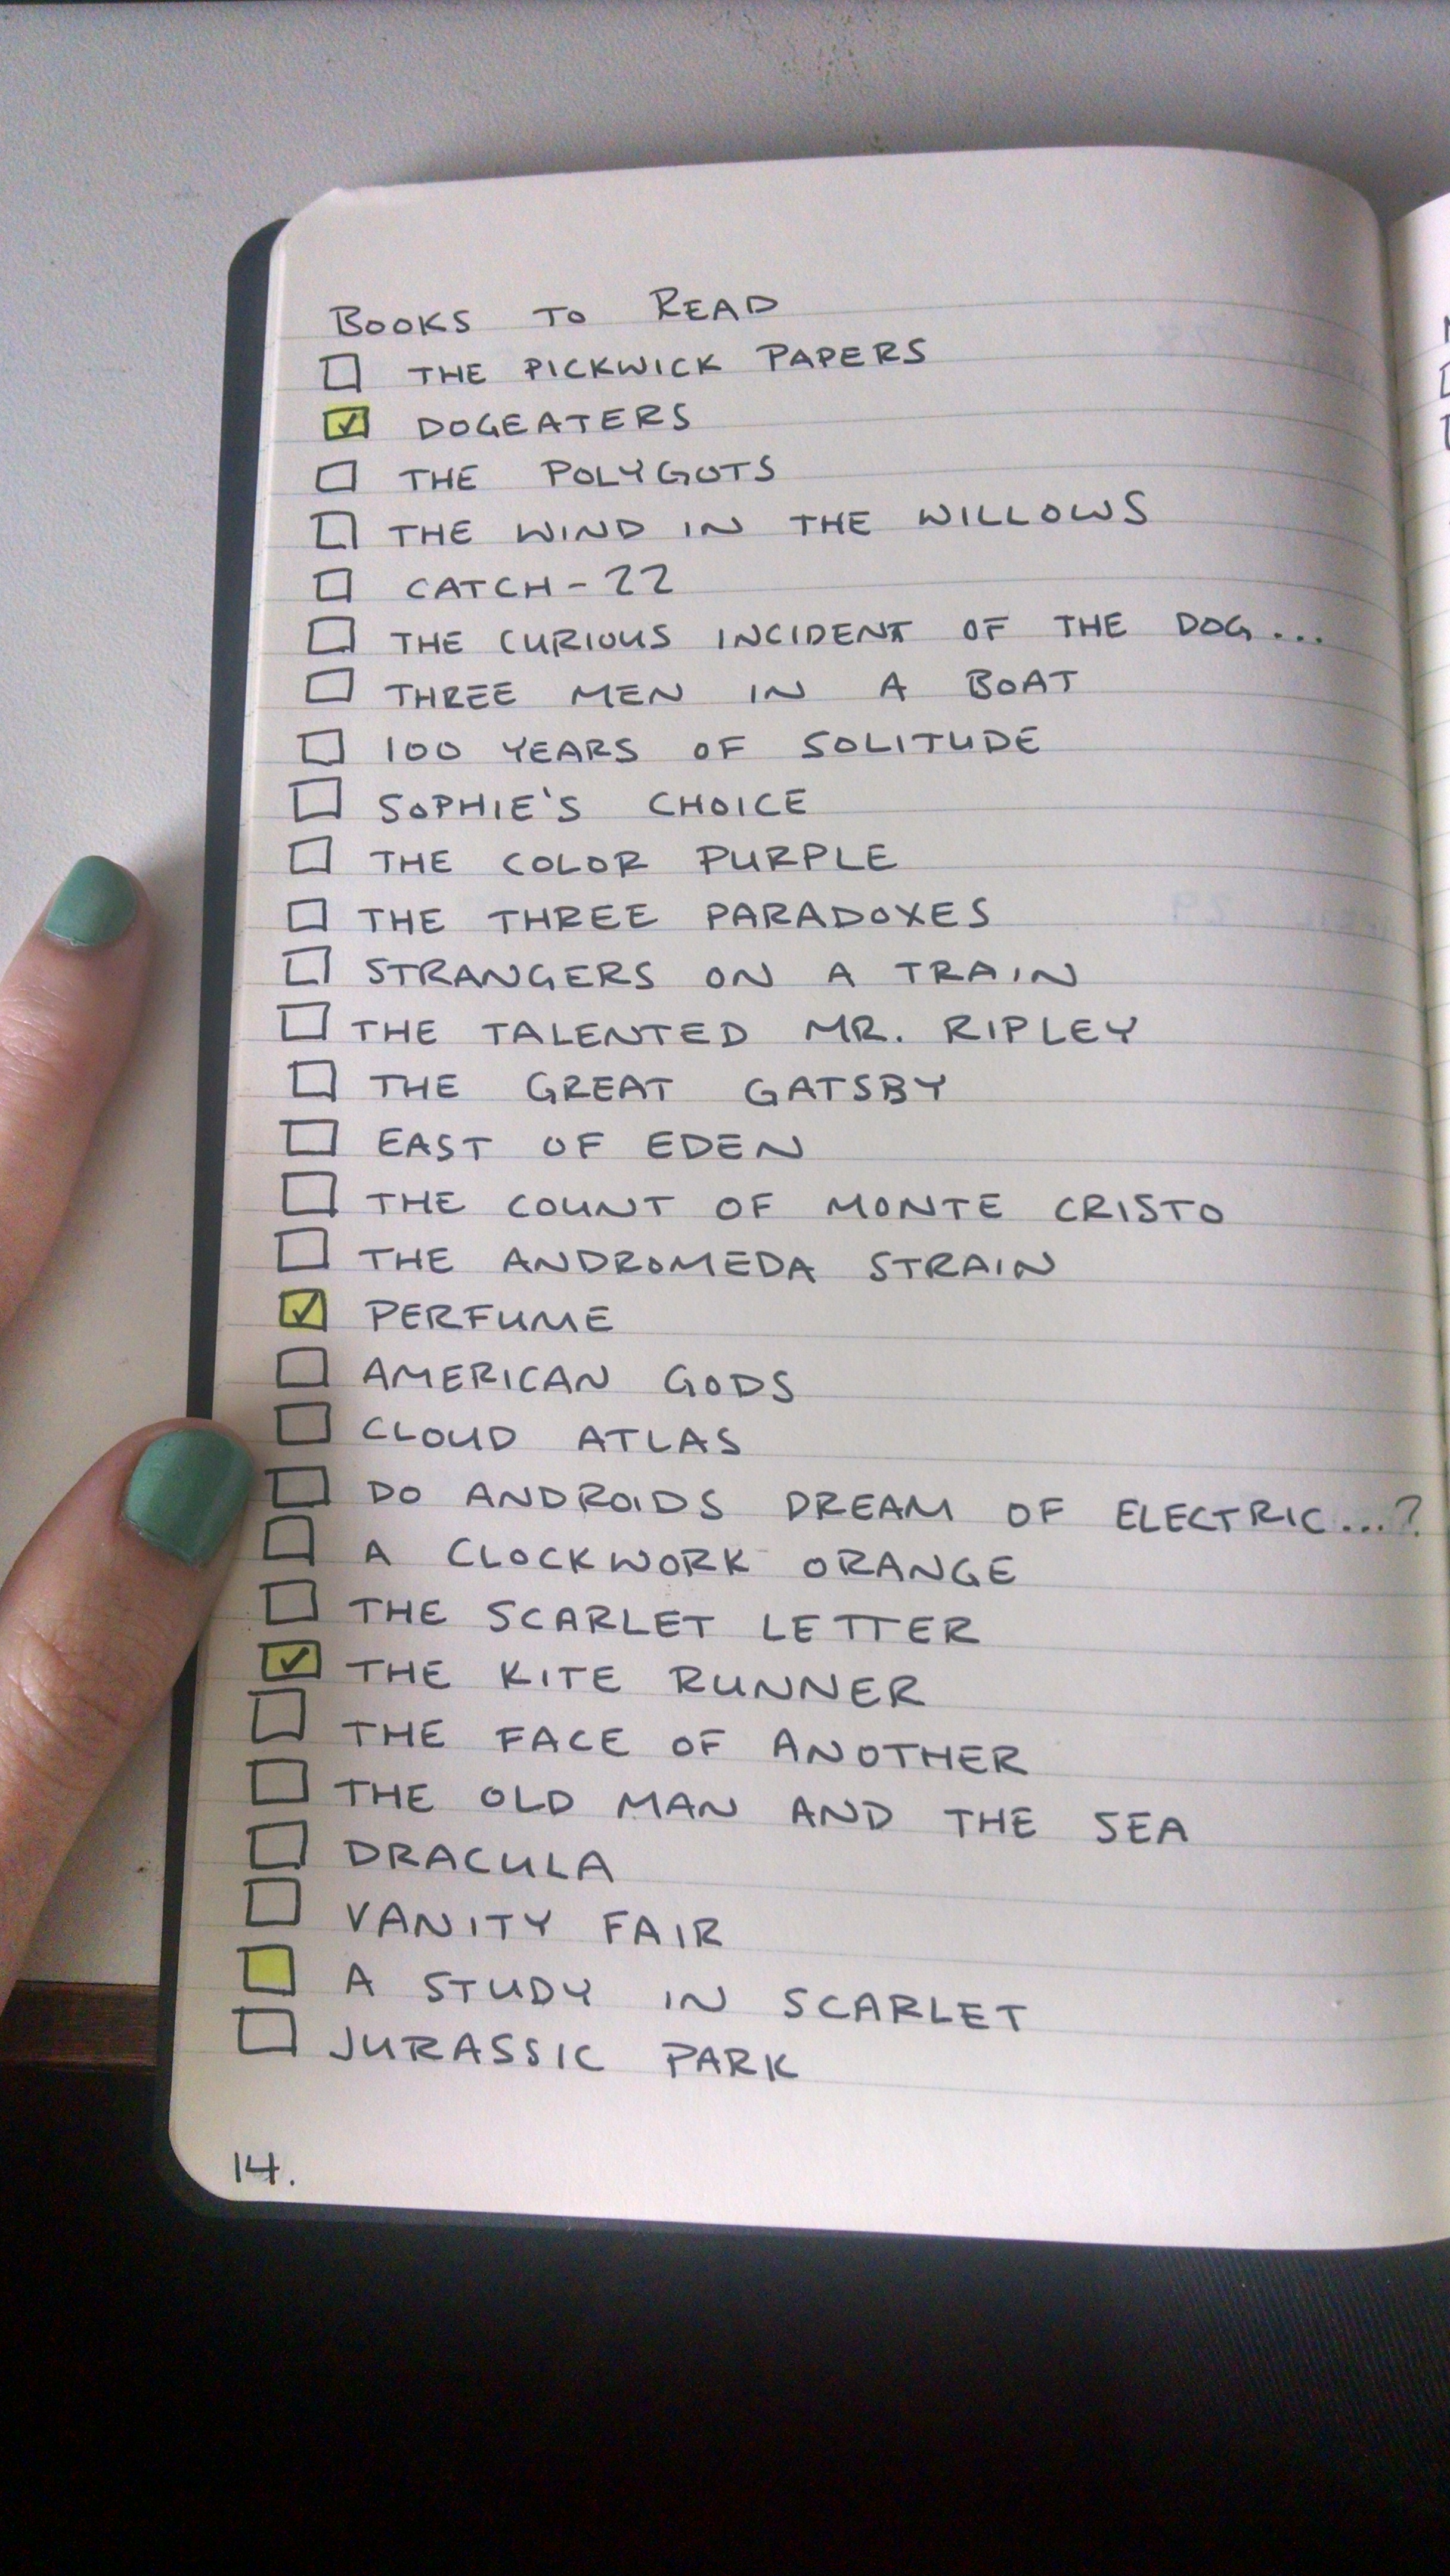 BOOKS TO READ
THE PICKWICK PAPERS
DOGEATERS
THE POLYGOTS
THE WIND IN THE WILLOWS
CATCH-22
THE CURIOUS INCIDENT OF THE DOG...
THREE MEN IN A BOAT
100 YEARS OF SOLITUDE
SOPHIE'S CHOICE
THE COLOR PURPLE
THE THREE PARADOXES
STRANGERS ON A TRAIN
THE TALENTED MR. RIPLEY
THE GREAT GATSBY
EAST OF EDEN
THE COUNT OF MONTE CRISTO
THE ANDROMEDA STRAIN
PERFUME
AMERICAN GODS
CLOUD ATLAS
DO ANDROIDS DREAM OF ELECTRIC...?
A CLOCKWORK ORANGE
THE SCARLET LETTER
THE KITE RUNNER
THE FACE OF ANOTHER
THE OLD MAN AND THE SEA
DRACULA
VANITY FAIR
A STUDY IN SCARLET
JURASSIC PARK
14.